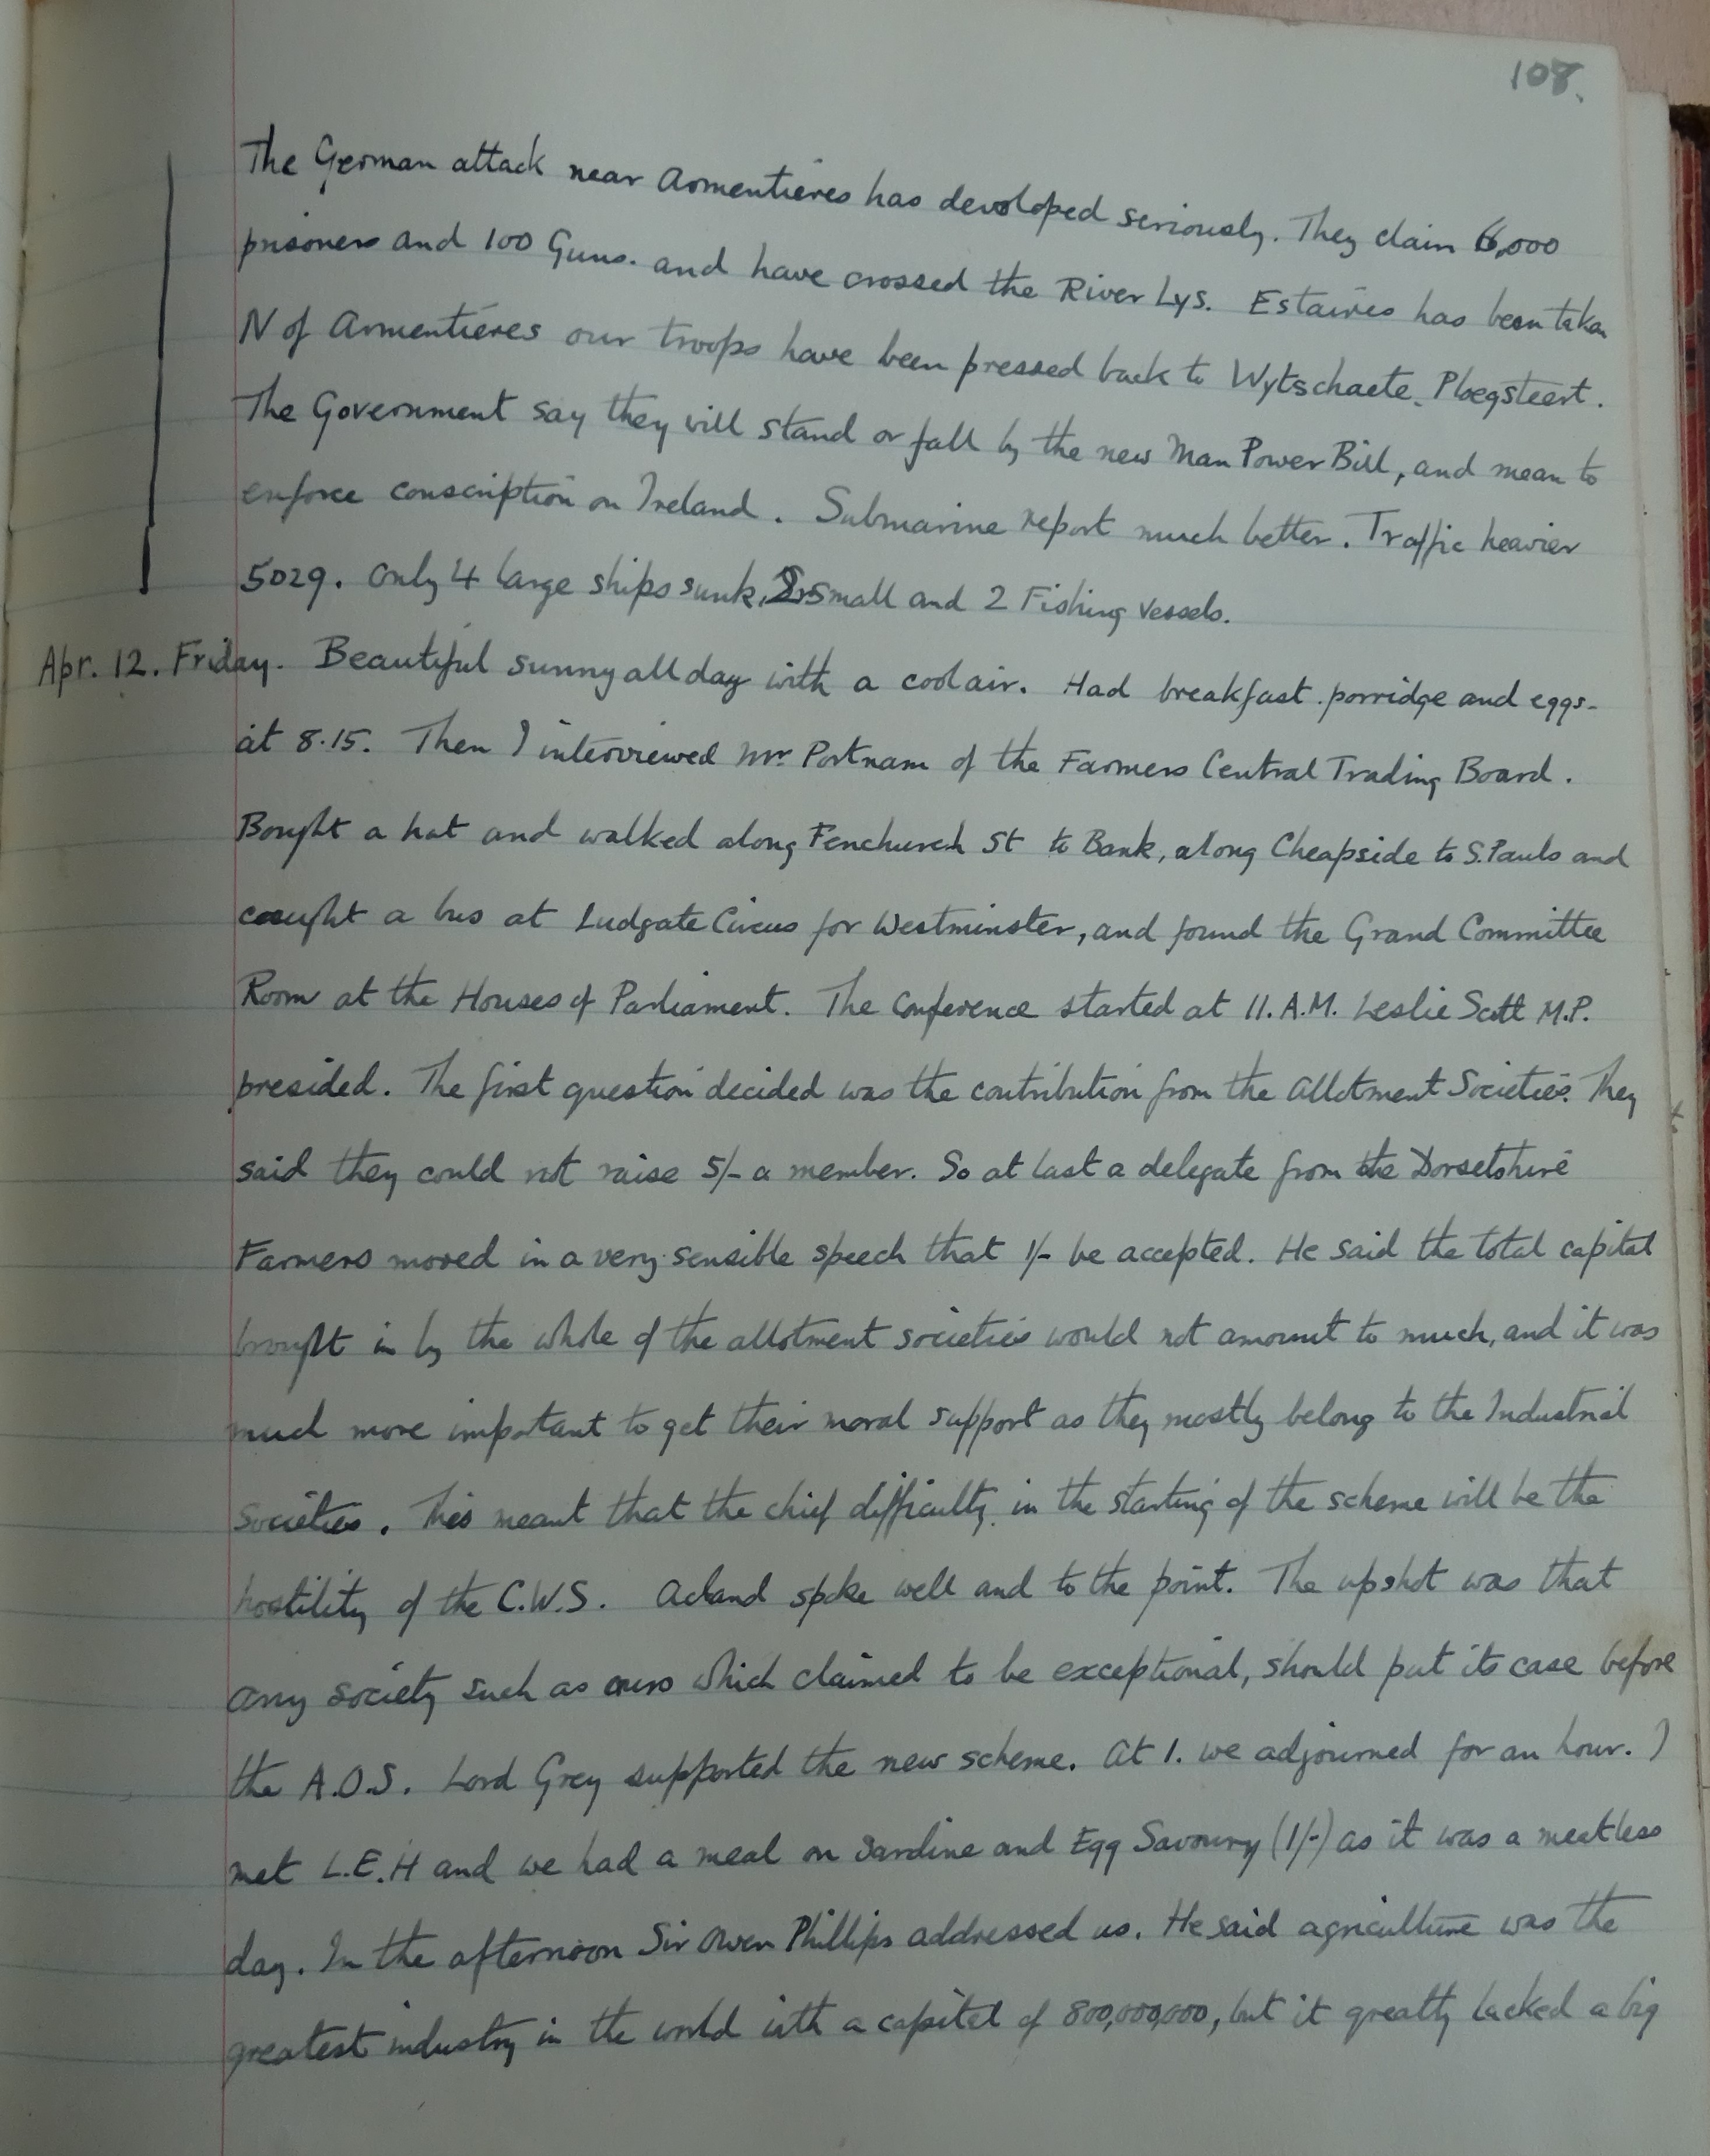 108.
The German attack near Armentières has developed seriously. They claim 6,000
prisoners and 100 Guns. and have crossed the River Lys. Estaires has been taken
N of Armentières our troops have been pressed back to Wytschaete. Ploegsteert.
The Government say they will stand or fall by the new Man Power Bill, and mean to
enforce conscription on Ireland. Submarine report much better. Traffic heavier
5029. Only 4 large ships sunk, 2 small and 2 Fishing Vessels.
Apr. 12. Friday. Beautiful sunny all day with a cool air. Had breakfast. porridge and eggs-
at 8.15. Then I interviewed Mr. Portnam of the Farmers Central Trading Board.
Bought a hat and walked along Fenchurch St to Bank, along Cheapside to S. Pauls and
caught a bus at Ludgate Circus for Westminster, and found the Grand Committee
Room at the Houses of Parliament. The Conference started at 11. A.M. Leslie Scott M.P.
presided. The first question decided was the contribution from the Allotment Societies. They
said they could not raise 5/- a member. So at last a delegate from the Dorsetshire
Farmers moved in a very sensible speech that 1/- be accepted. He said the total capital
brought in by the whole of the allotment societies would not amount to much, and it was
much more important to get their moral support as they mostly belong to the Industrial
Societies. This meant that the chief difficulty in the starting of the scheme will be the
hostility of the C.W.S. Acland spoke well and to the point. The upshot was that
any society such as ours which claimed to be exceptional, should put its case before
the A.O.S. Lord Grey supported the new scheme. At 1. we adjourned for an hour. I
met L.E.H and we had a meal on Sardine and Egg Savoury (1/-) as it was a meatless
day. In the afternoon Sir Owen Phillips addressed us. He said agriculture was the
greatest industry in the world with a capital of 800,000,000, but it greatly lacked a big